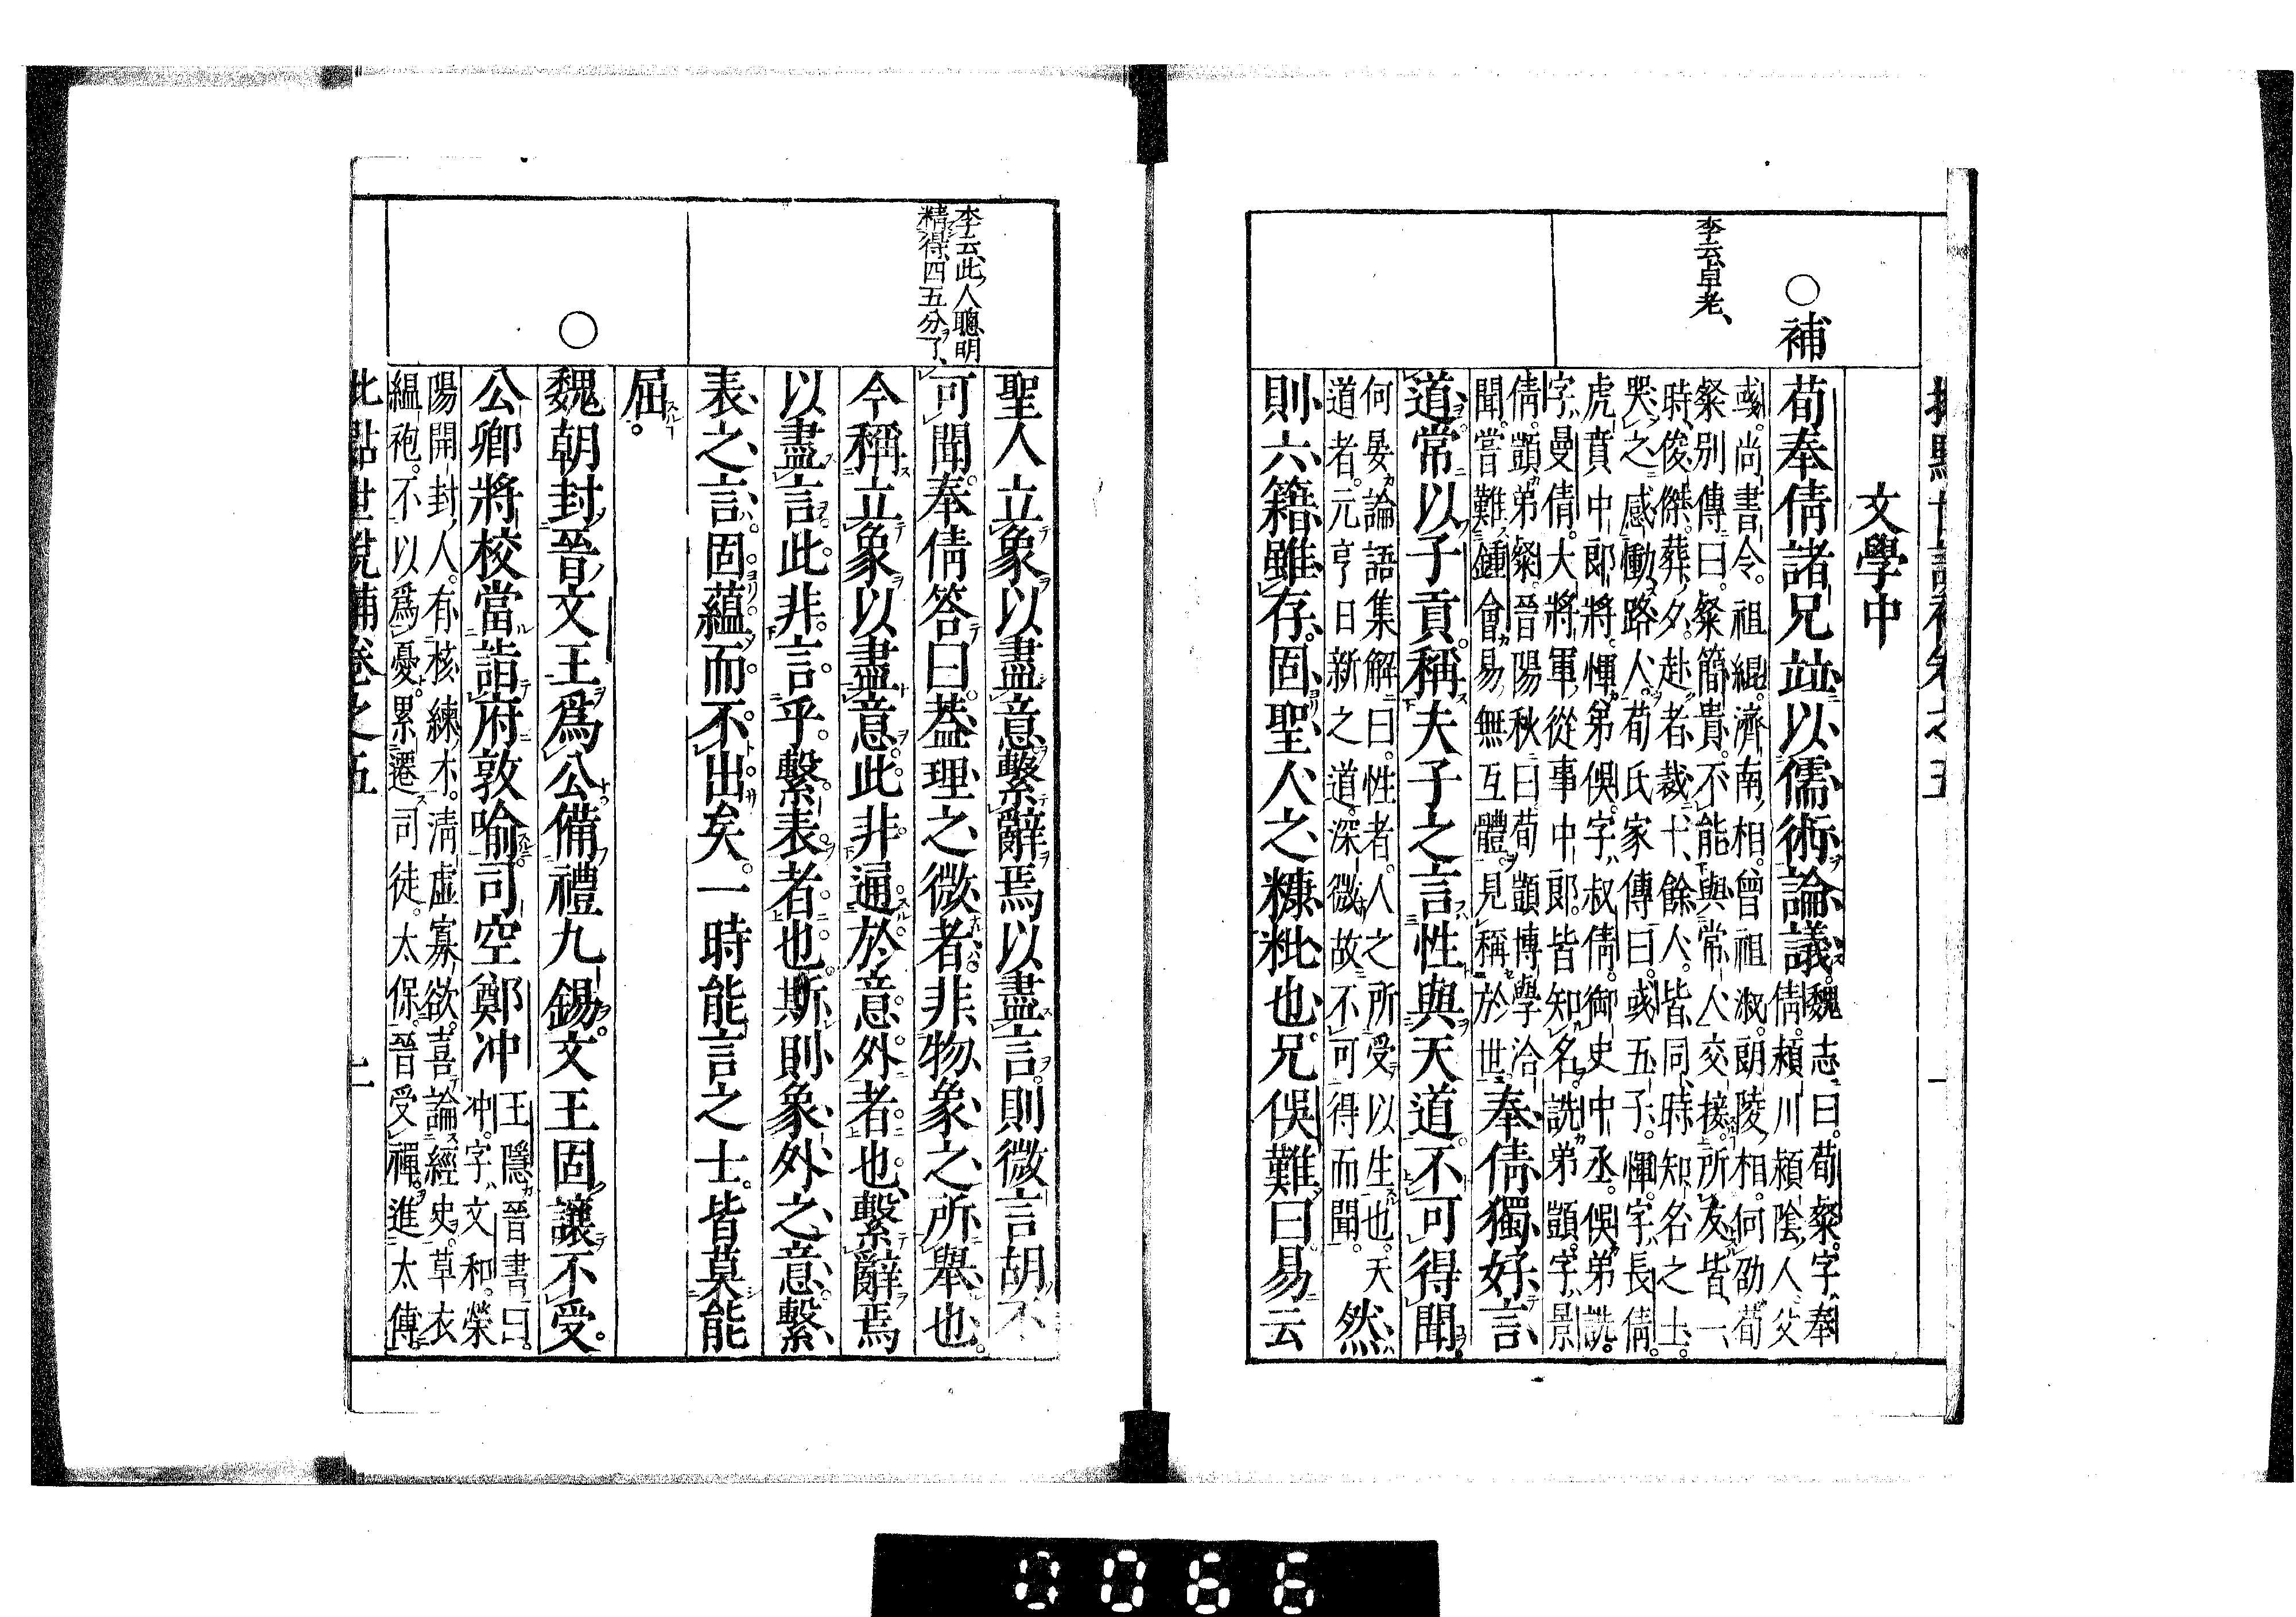 批點世說補卷之五　一
文學中
○補
荀奉倩諸兄竝以儒術論議。魏志曰。荀粲。字奉
倩。潁川潁陰人。父
彧。尚書令。祖緄。濟南相。曾祖淑。朗陵相。何劭荀
粲別傳曰。粲簡貴。不能與常人交接。所友皆一
時俊傑。葬夕。赴者裁十餘人。皆同時知名之士。
哭之感慟路人。荀氏家傳曰。彧五子。惲。字長倩。
虎賁中郎將。惲弟俁。字叔倩。御史中丞。俁弟詵。
字曼倩。大將軍從事中郎。皆知名。詵弟顗。字景
倩。顗弟粲。晉陽秋曰。荀顗博學洽
聞。嘗難鍾會易無互體。見稱於世。奉倩獨好言
李云、卓老、
道。常以子貢。稱夫子之言性與天道不可得聞
何晏論語集解曰。性者。人之所受以生也。天
道者。元亨日新之道。深微故不可得而聞。然
則六籍雖存。固聖人之糠粃也。兄俁難曰易云
聖人立象以盡意繫辭焉以盡言。則微言胡不
李云、此人聰明
精得四五分了、
可聞。奉倩答曰。蓋理之微者。非物象之所舉也。
今稱立象以盡意。此非通於意外者也。繫辭焉
以盡言。此非言乎繫表者也。斯則象外之意。繫
表之言。固蘊而不出矣。一時能言之士。皆莫能
屈。
○
魏朝封晉文王爲公備禮九錫。文王固讓不受。
公卿將校當詣府敦喻司空鄭冲王隱晉書曰。
冲。字文和。榮
陽開封人。有核練才。清虛寡欲。喜論經史。草衣
縕袍。不以爲憂累遷司徒。太保。晉受禪。進太傅。
批點世說補卷之五　二
0066